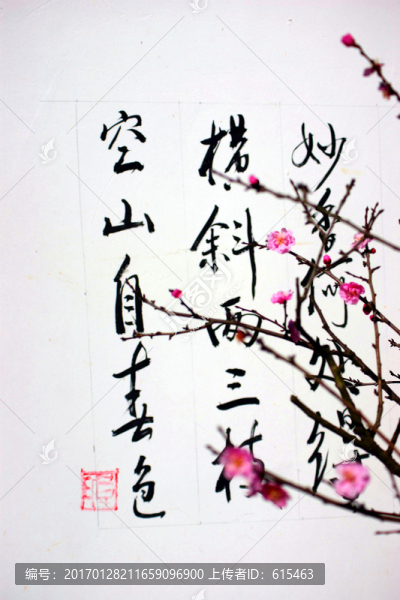 妙香
横斜两三枝
空山自春色
编号：20170128211659096900 上传者ID号：615463